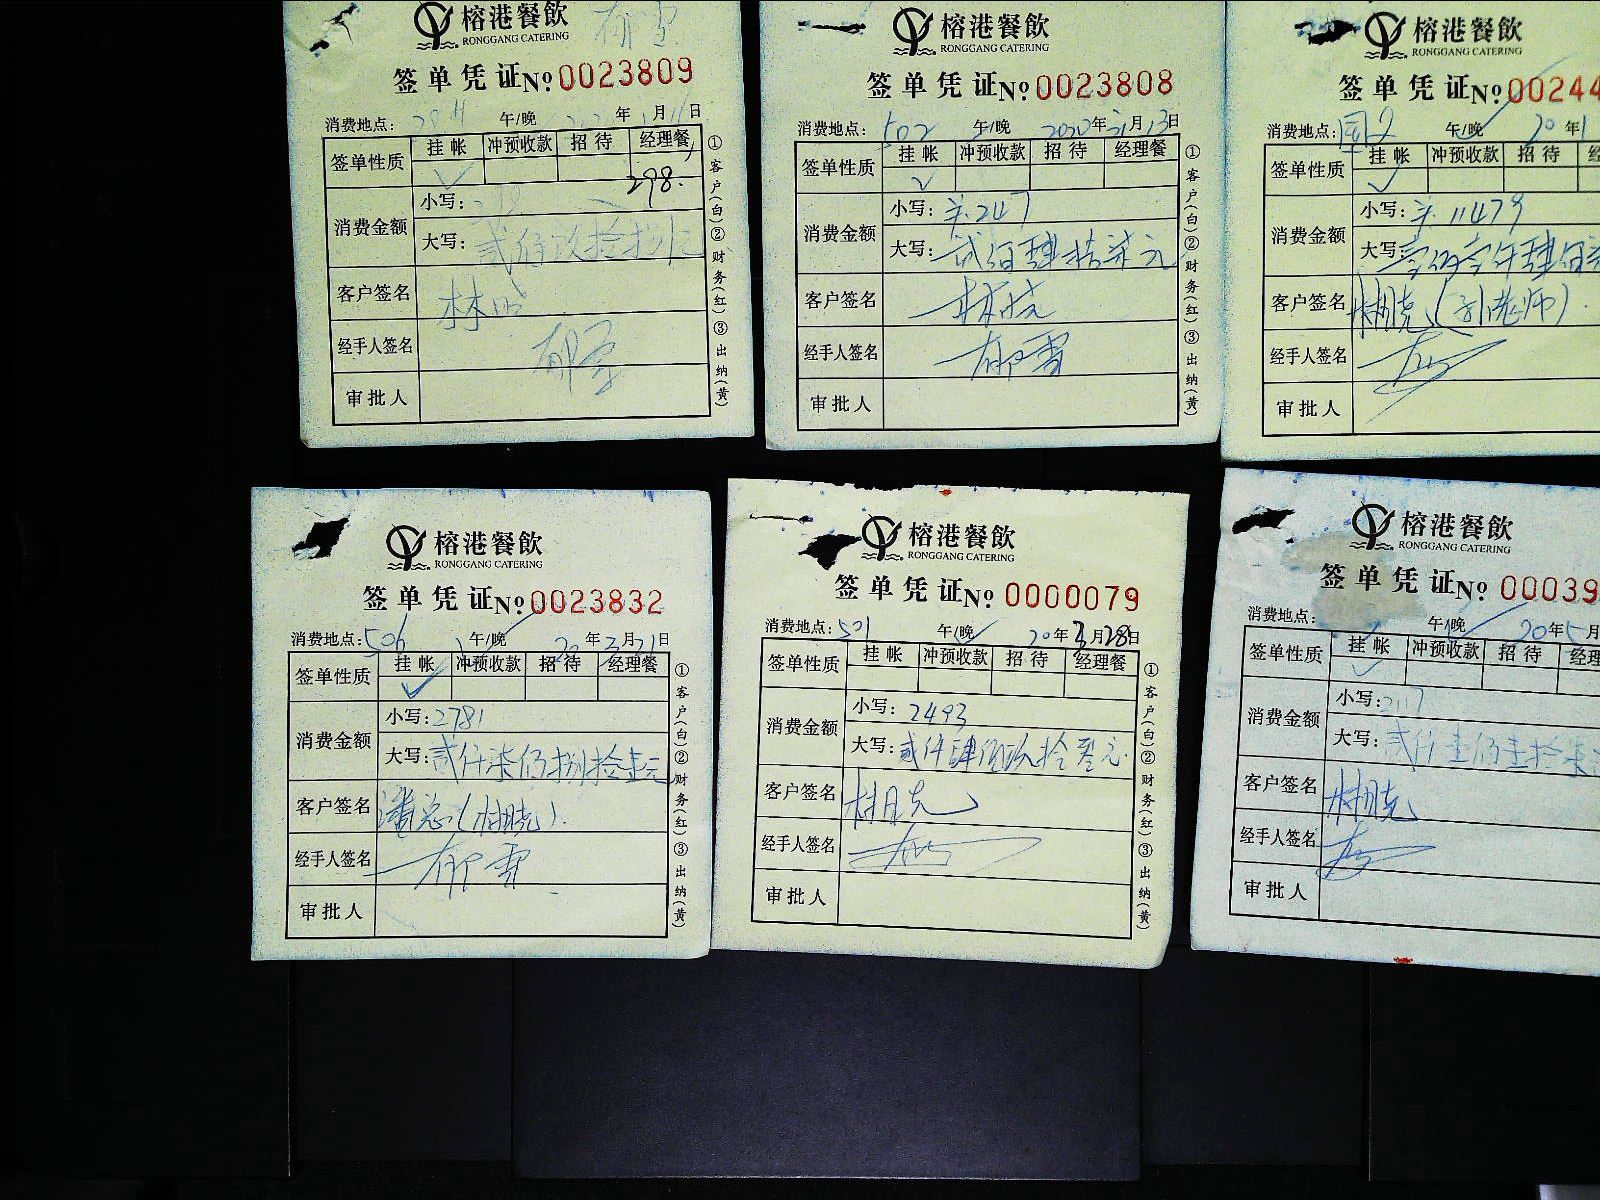 榕港餐飲
RONGGANG CATERING
郁雪
签单凭证№0023809
消费地点: 午/晚 年 月 日
签单性质 挂帐 冲预收款 招待 经理餐
298.
消费金额 小写:
大写: 贰佰玖拾捌元
客户签名 林
经手人签名 郁雪
审批人
①客户(白)②财务(红)③出纳(黄)
榕港餐飲
RONGGANG CATERING
签单凭证№0023808
消费地点: 502 午/晚 2020年 月13日
签单性质 挂帐 冲预收款 招待 经理餐
消费金额 小写: 247
大写: 贰佰肆拾柒元
客户签名 林晓
经手人签名 郁雪
审批人
①客户(白)②财务(红)③出纳(黄)
榕港餐飲
RONGGANG CATERING
签单凭证№00244
消费地点: 国2 午/晚 20年1
签单性质 挂帐 冲预收款 招待 经
消费金额 小写: 11479
大写: 壹万壹仟肆佰
客户签名 林晓(孙老师).
经手人签名
审批人
榕港餐飲
RONGGANG CATERING
签单凭证№0023832
消费地点: 506 午/晚 20年3月21日
签单性质 挂帐 冲预收款 招待 经理餐
消费金额 小写: 2781
大写: 贰仟柒佰捌拾壹元
客户签名 潘总(林晓).
经手人签名 郁雪
审批人
①客户(白)②财务(红)③出纳(黄)
榕港餐飲
RONGGANG CATERING
签单凭证№0000079
消费地点: 501 午/晚 20年3月28日
签单性质 挂帐 冲预收款 招待 经理餐
消费金额 小写: 2493
大写: 贰仟肆佰玖拾叁元
客户签名 林晓
经手人签名
审批人
①客户(白)②财务(红)③出纳(黄)
榕港餐飲
RONGGANG CATERING
签单凭证№00039
消费地点: 午/晚 20年5月
签单性质 挂帐 冲预收款 招待 经理
消费金额 小写: 2117
大写: 贰仟壹佰壹拾柒
客户签名 林晓
经手人签名
审批人